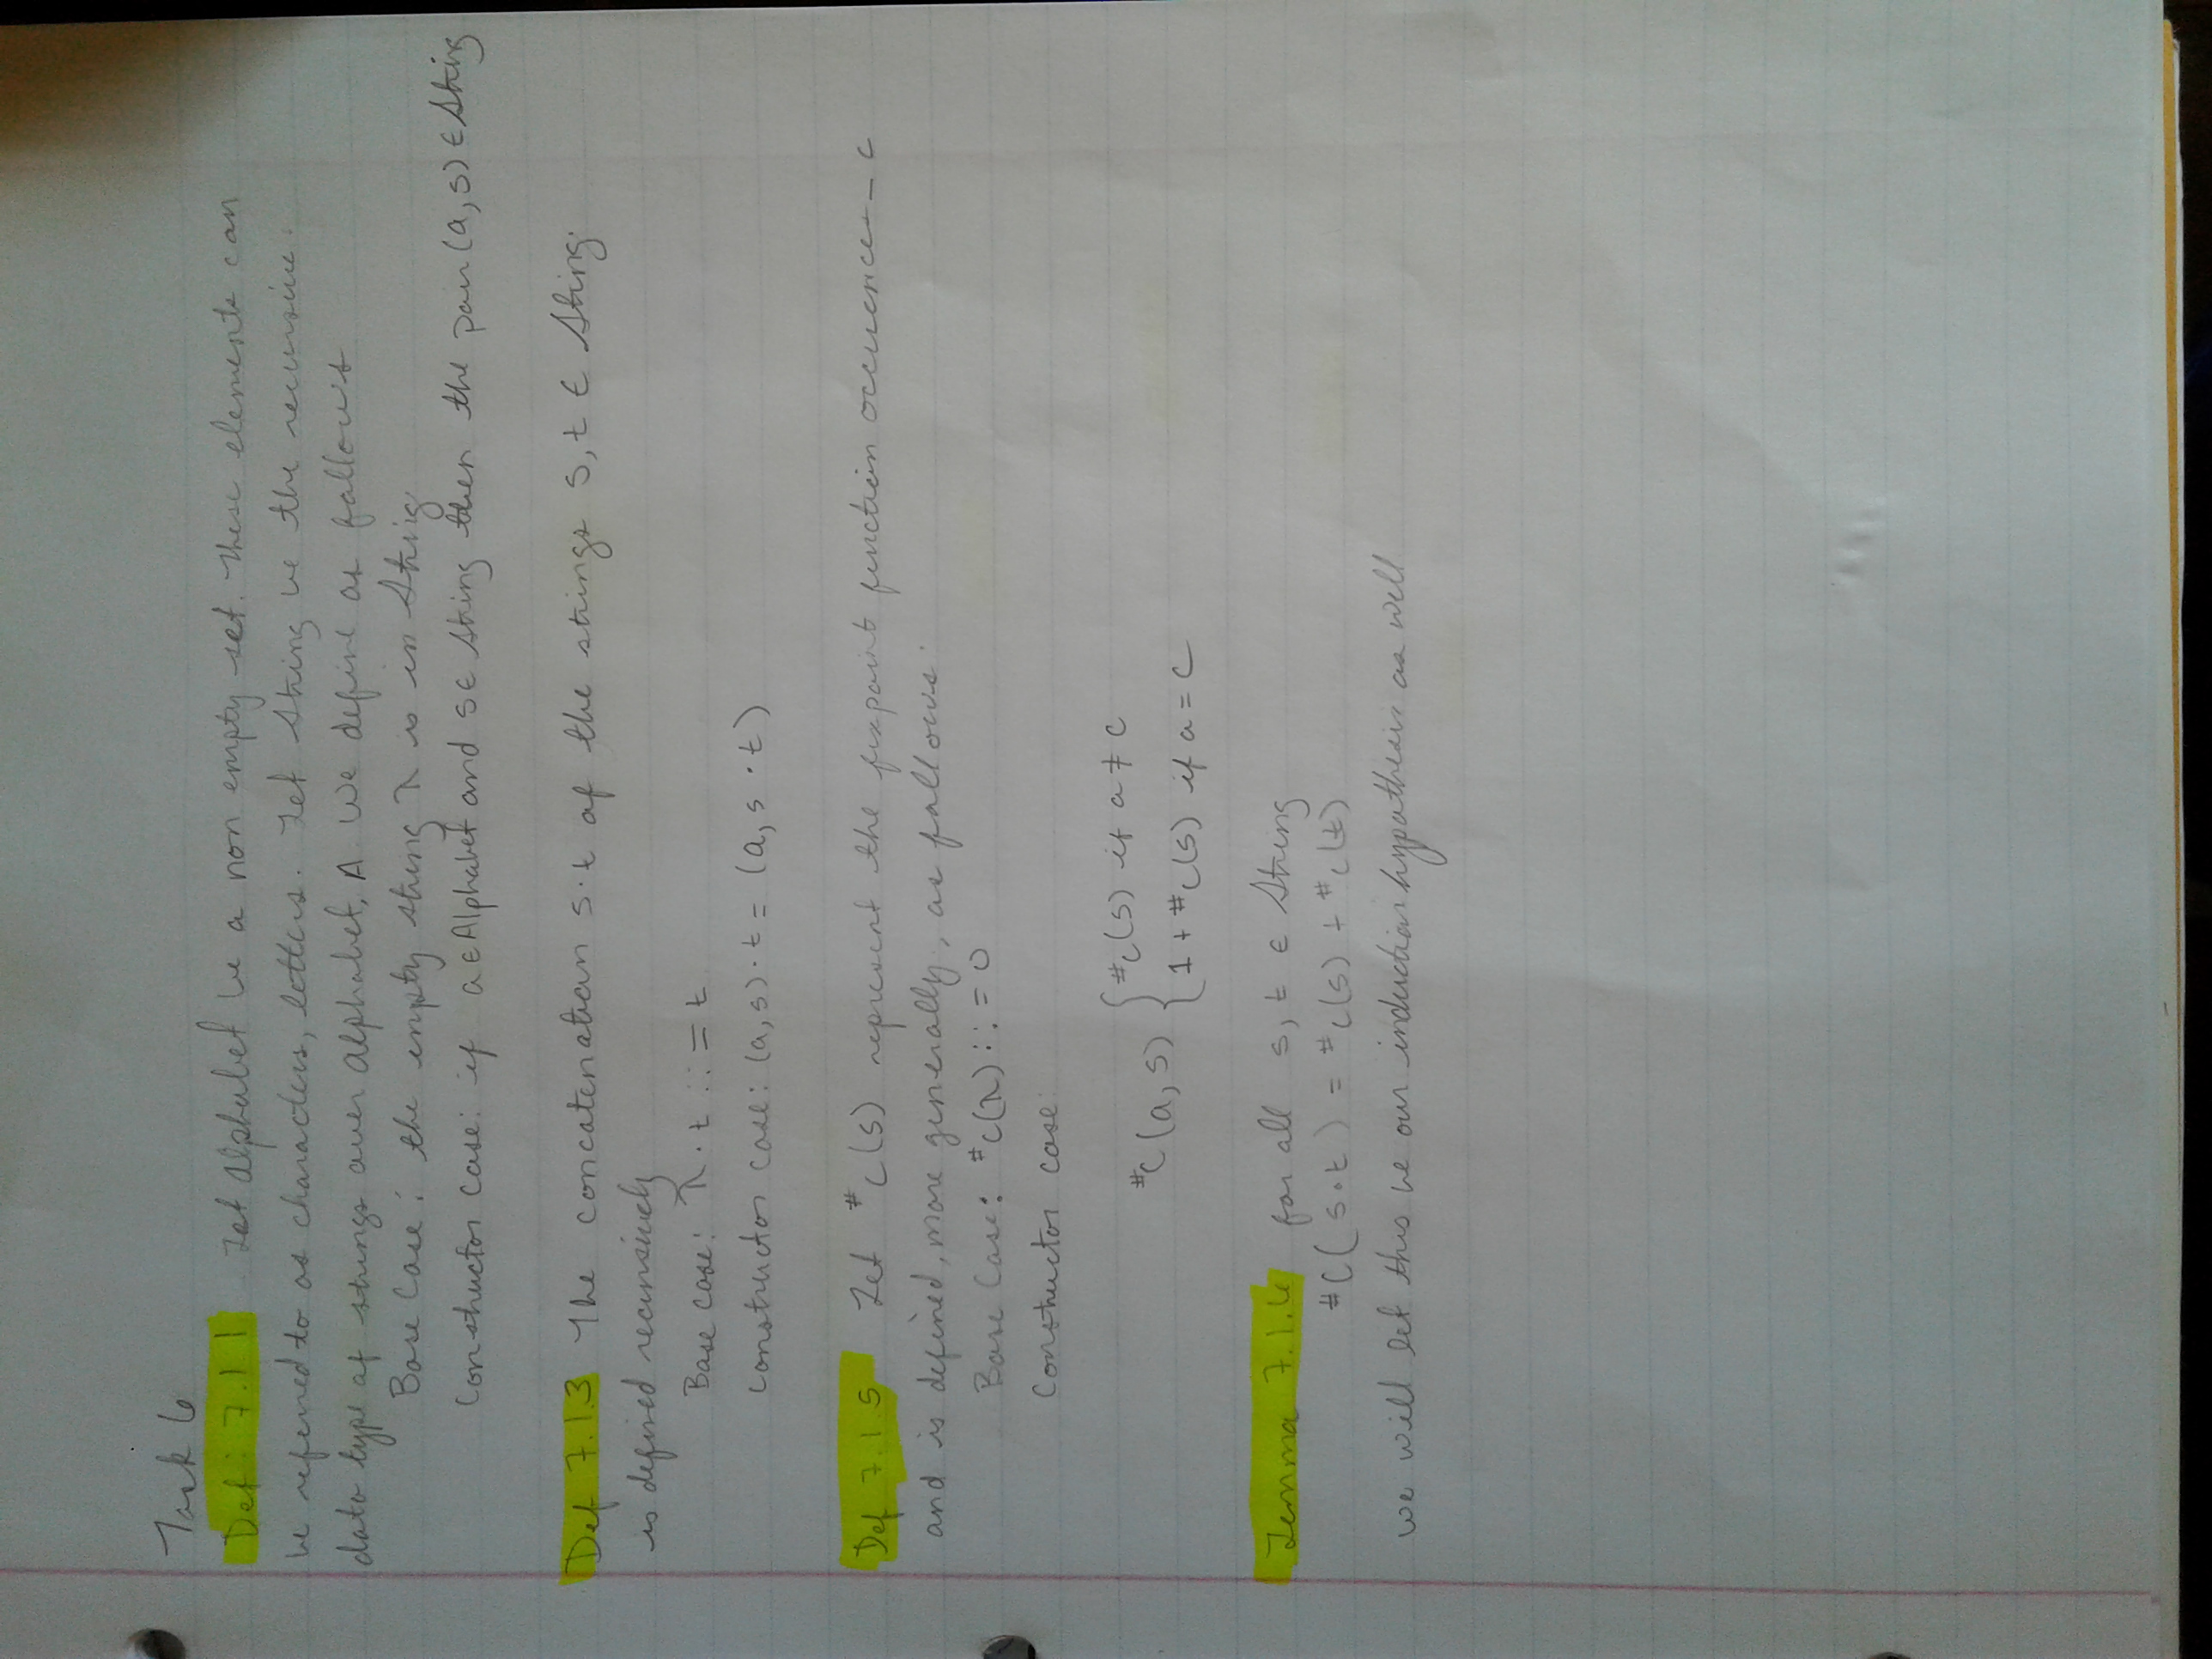 Task 6
Def: 7.1 1 Let Alphabet be a non empty set. These elements can
be referred to as characters, letters. Let String be the recursive
data type of strings over alphabet, A. We define as follows
Base Case: the empty string λ is in String
Constructor case: if a ∈ Alphabet and s ∈ String then the pair (a, s) ∈ String
Def 7.1.3 The concatenation s·t of the strings s, t ∈ String
is defined recursively
Base case: λ·t ::= t
constructor case: (a, s)·t = (a, s·t)
Def 7.1.5 Let #c(s) represent the fixpoint function occurences_c
and is defined, more generally, as follows:
Base Case: #c(λ) ::= 0
Constructor case:
#c(a, s) { #c(s) if a ≠ c
1 + #c(s) if a = c
Lemma 7.1.6 for all s, t ∈ String
#c(s·t) = #c(s) + #c(t)
we will let this be our induction hypothesis as well